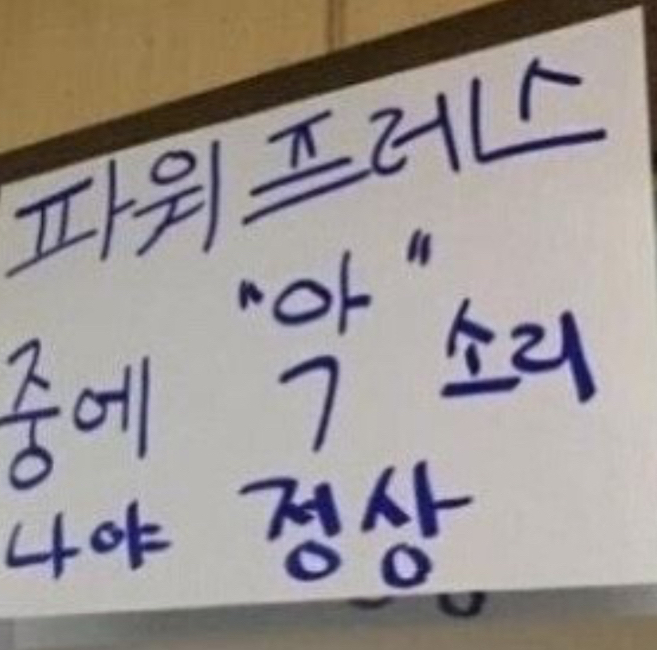 파워 프레스
중에 "악" 소리
나야 정상